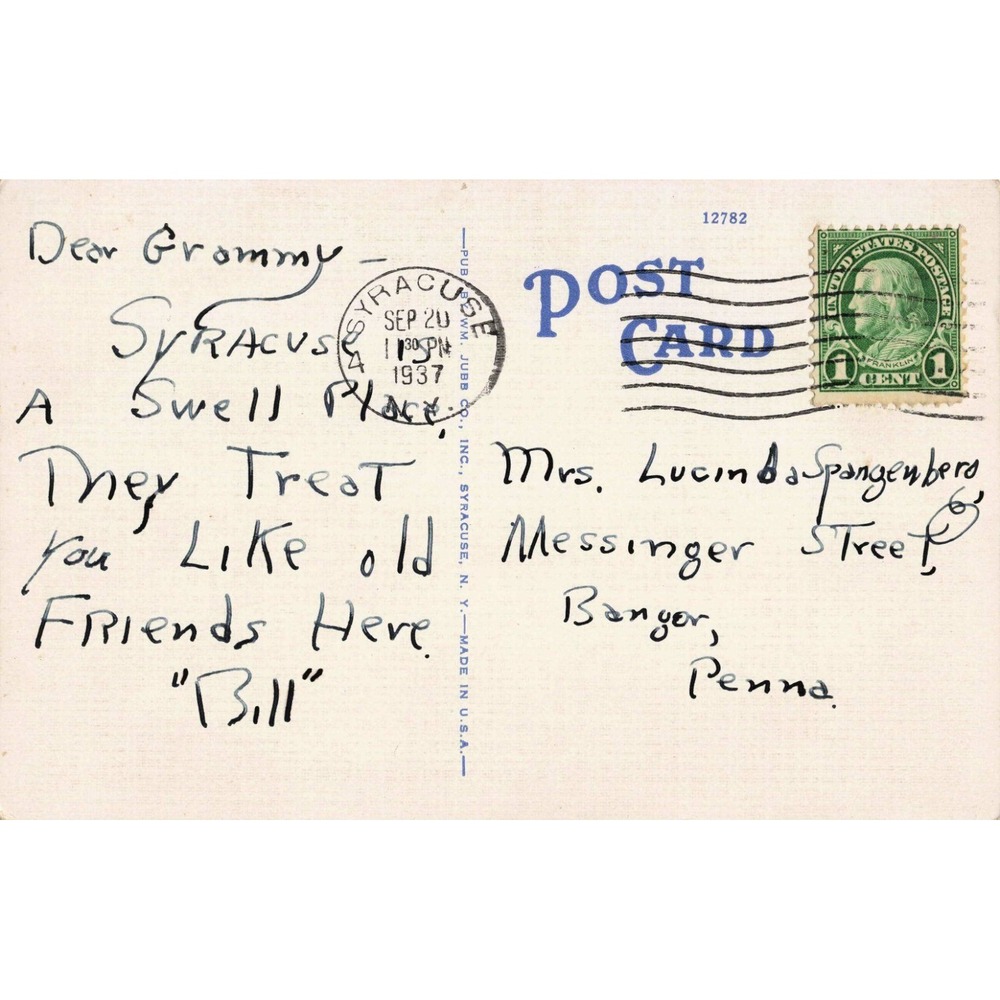 Dear Grammy –
SYRACUSE IS
A Swell Place,
They Treat
You Like old
FRiends Here.
"Bill"
SYRACUSE
SEP 20
11 30 PM
1937
N.Y.
4
PUB. BY WM. JUBB CO., INC., SYRACUSE, N. Y.—MADE IN U.S.A.
12782
POST
CARD
UNITED STATES POSTAGE
FRANKLIN
1 CENT 1
Mrs. Lucinda Spangenberg,
Messinger Street,
Bangor,
Penna.